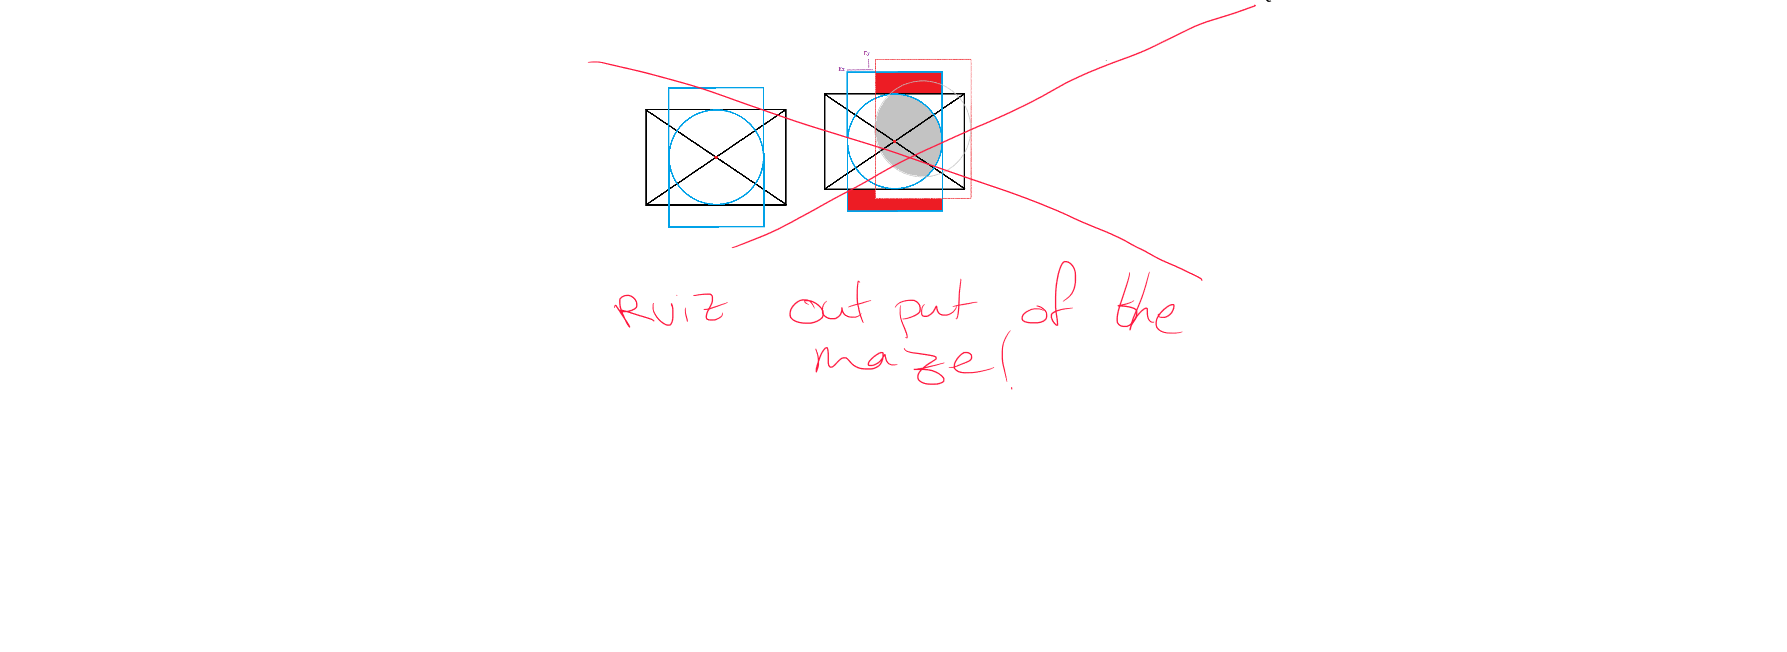 RViZ output of the
maze!